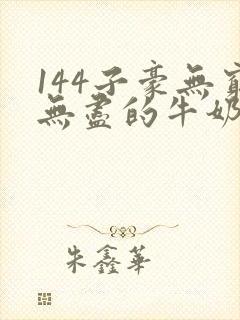 144子豪無窮
無盡的牛奶
朱鑫華